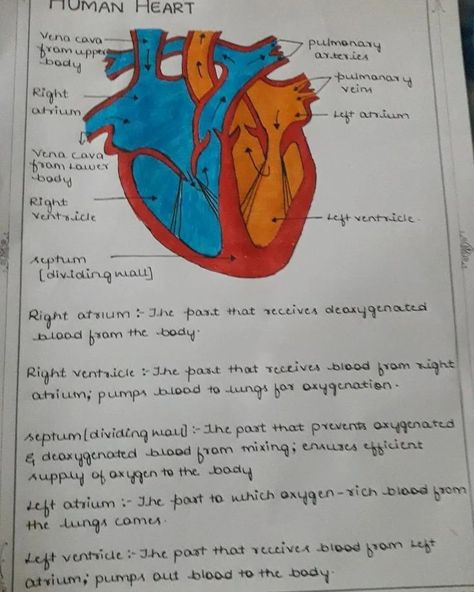 HUMAN HEART
vena cava
from upper
body
Right
atrium
vena cava
from Lower
body
Right
ventricle
septum
[dividing wall]
pulmonary
arteries
pulmonary
veins
Left atrium
Left ventricle.
Right atrium :- The part that receives deoxygenated
blood from the body.
Right ventricle :- The part that receives blood from right
atrium; pumps blood to lungs for oxygenation.
septum [dividing wall] :- The part that prevents oxygenated
& deoxygenated blood from mixing; ensures efficient
supply of oxygen to the body
Left atrium :- The part to which oxygen-rich blood from
the lungs comes.
Left ventricle :- The part that receives blood from left
atrium; pumps out blood to the body.